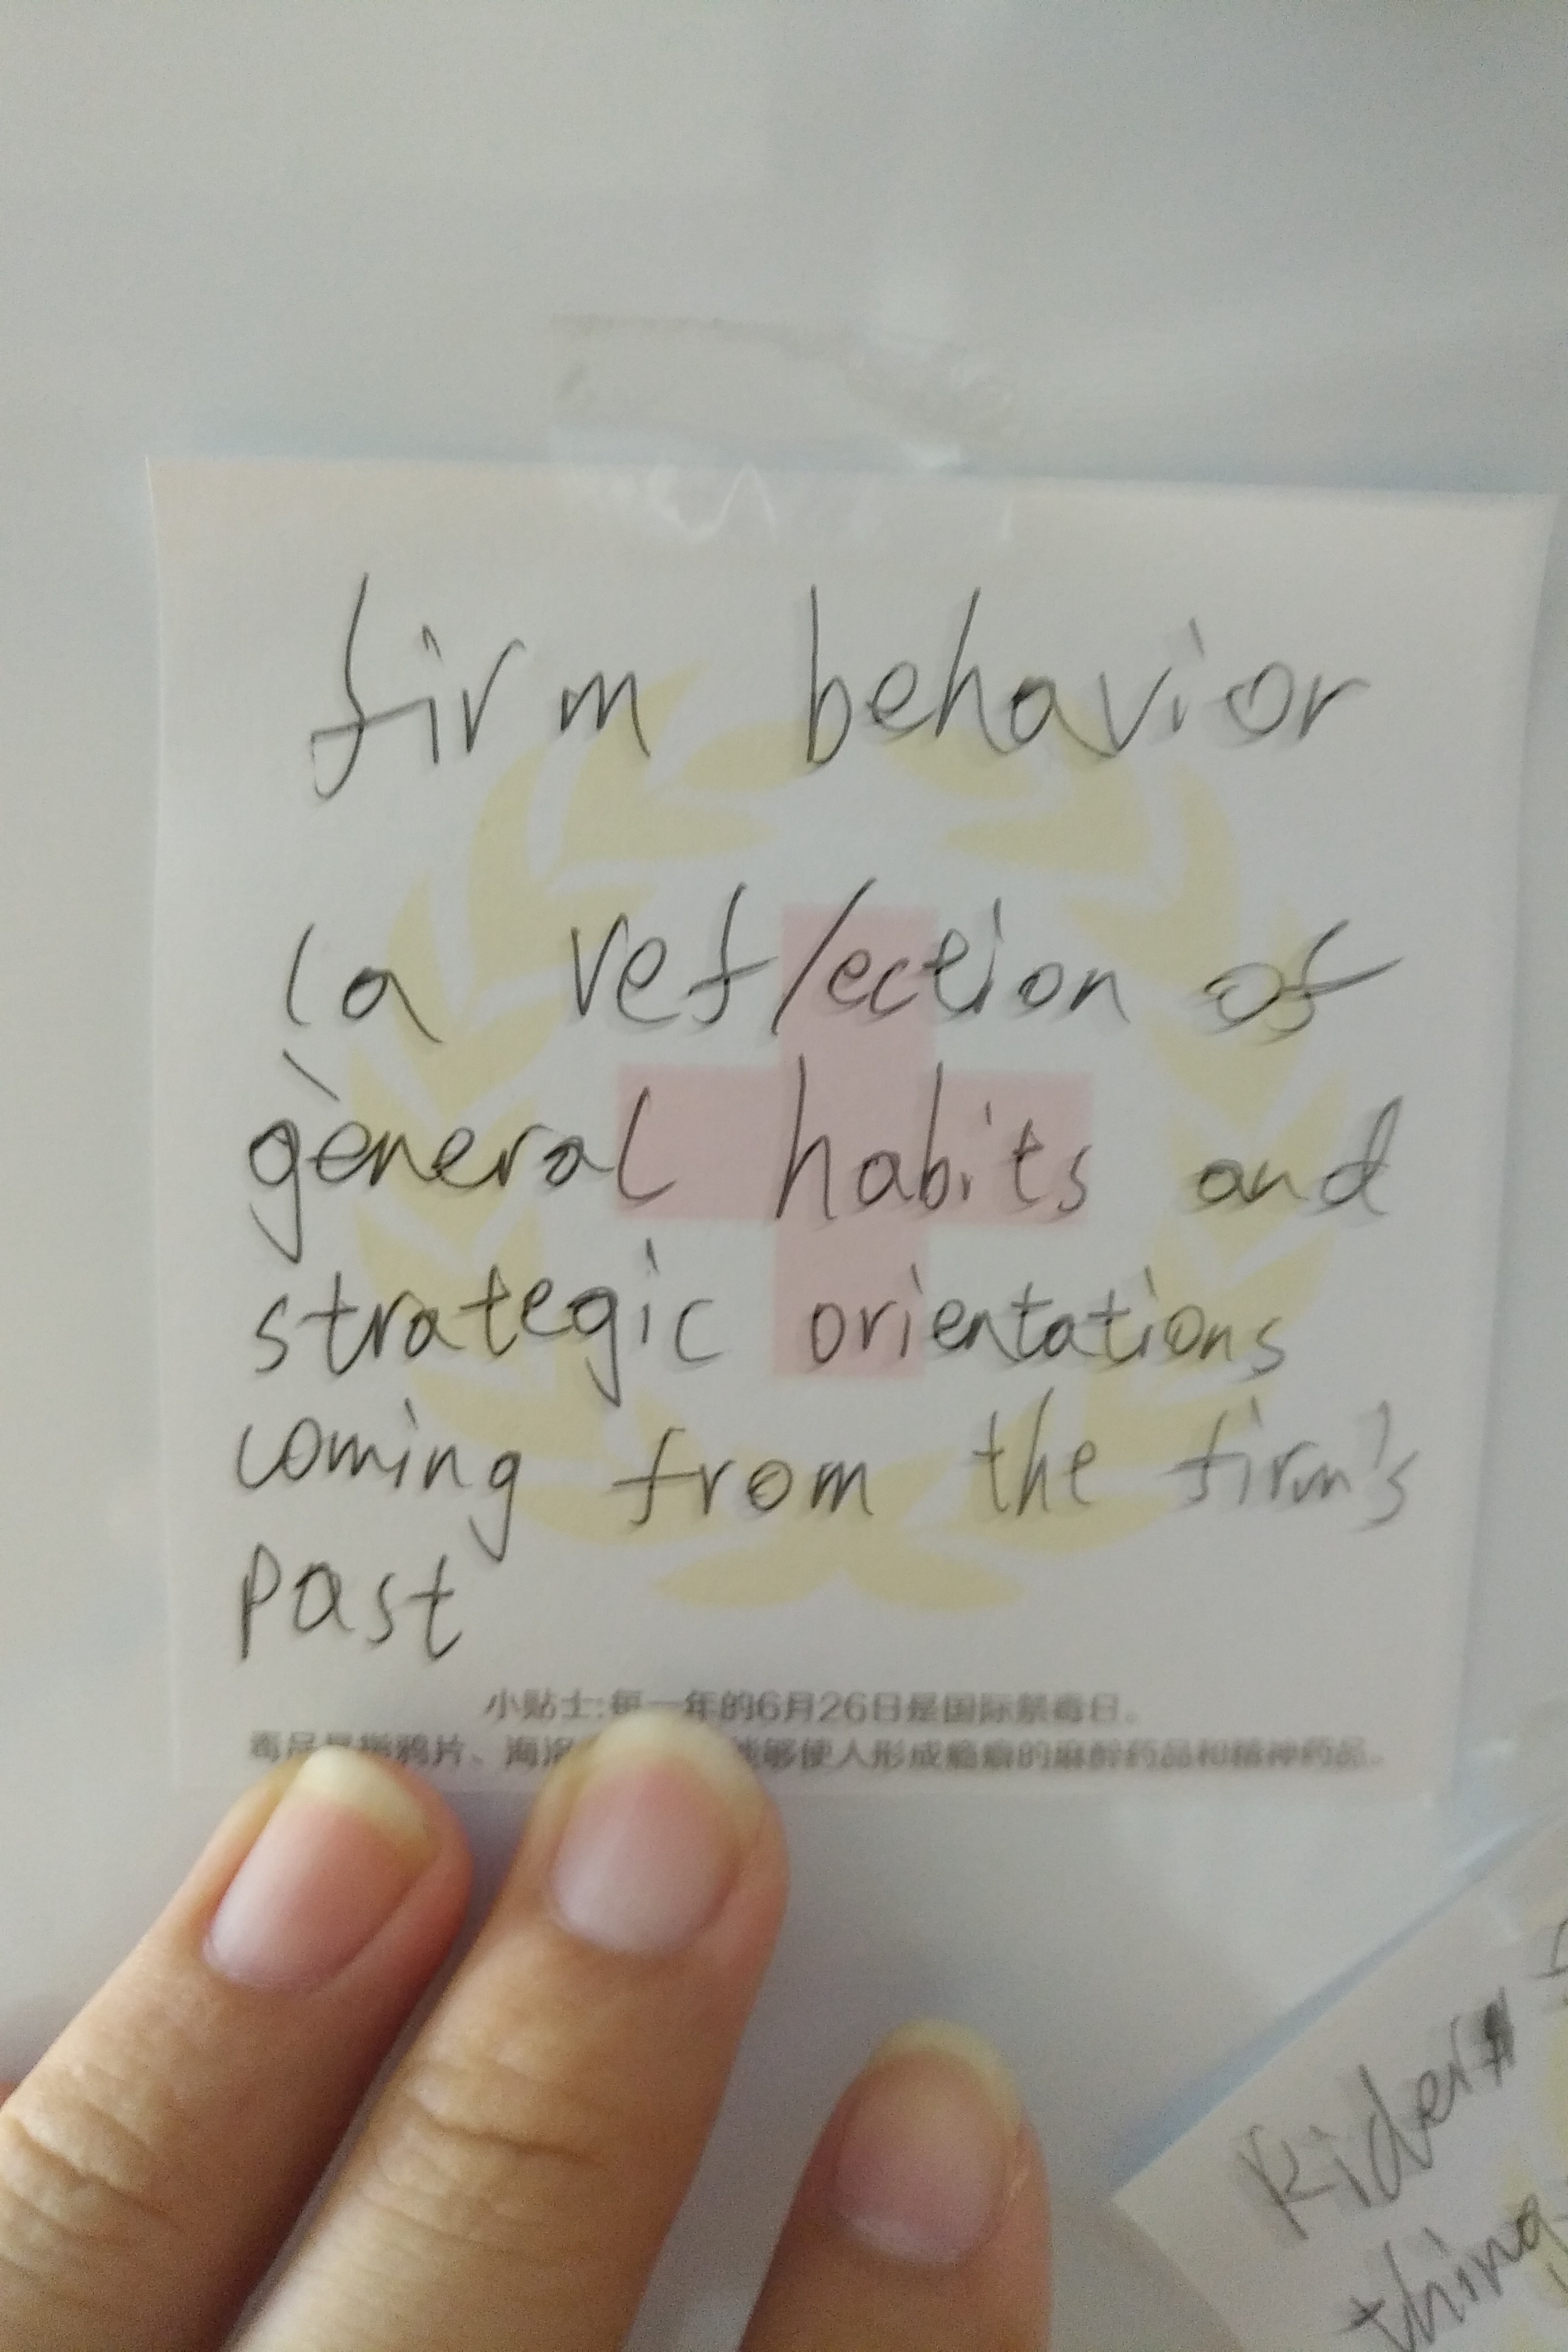 firm behavior
(a reflection of
general habits and
strategic orientations
coming from the firm's
past
小贴士:每一年的6月26日是国际禁毒日。
毒品是指鸦片、海洛 能够使人形成瘾癖的麻醉药品和精神药品。
Rider
thing